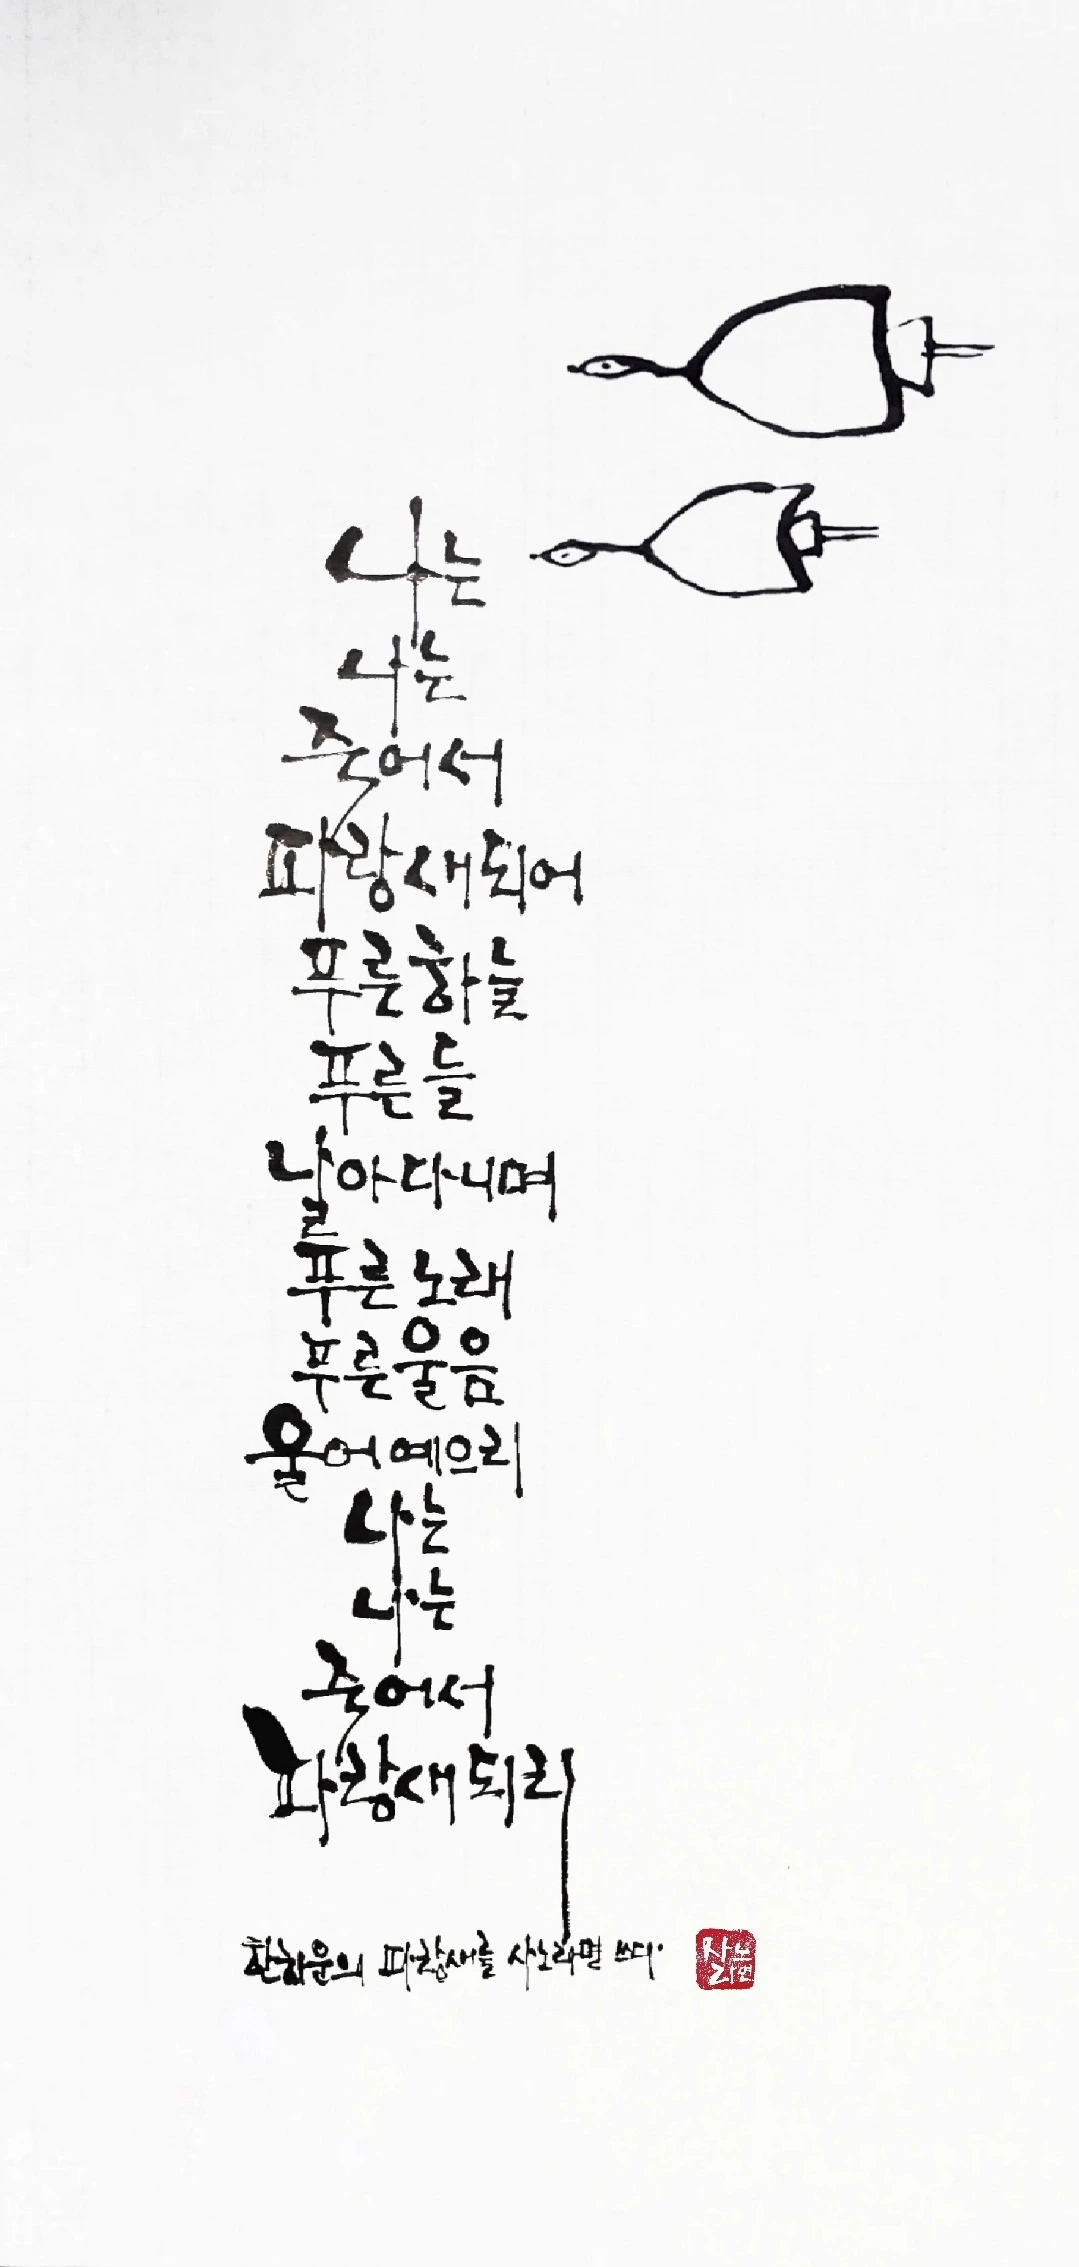 나는
나는
죽어서
파랑새 되어
푸른 하늘
푸른 들
날아 다니며
푸른 노래
푸른 울음
울어 예으리
나는
나는
죽어서
파랑새 되리
한하운의 파랑새를 사노라면 쓰다.
사노
라면